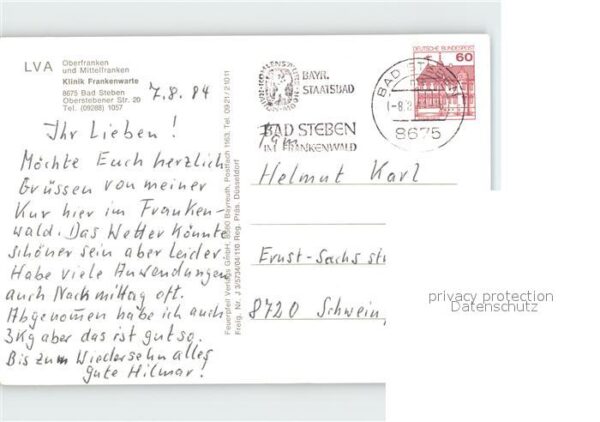 LVA Oberfranken
und Mittelfranken
Klinik Frankenwarte
8675 Bad Steben
Oberstebener Str. 20
Tel. (09288) 1057
7.8.84
Ihr Lieben!
Möchte Euch herzlich
Grüssen von meiner
Kur hier im Franken-
wald. Das Wetter könnte
schöner sein aber leider.
Habe viele Anwendungen
auch Nachmittag oft.
Abgenommen habe ich auch
3Kg aber das ist gut so.
Bis zum Wiedersehn alles
gute Hilmar!
Feuerpfeil Verlags GmbH, 8580 Bayreuth, Postfach 1163, Tel. 09 21 / 2 10 11
Freig. Nr. J 3/5734/04/110 Reg. Präs. Düsseldorf
BAYR.
STAATSBAD
BAD STEBEN
IM FRANKENWALD
DEUTSCHE BUNDESPOST
60
BAD
8675
Helmut Karl
Ernst-Sachs str
8720 Schwein
privacy protection
Datenschutz